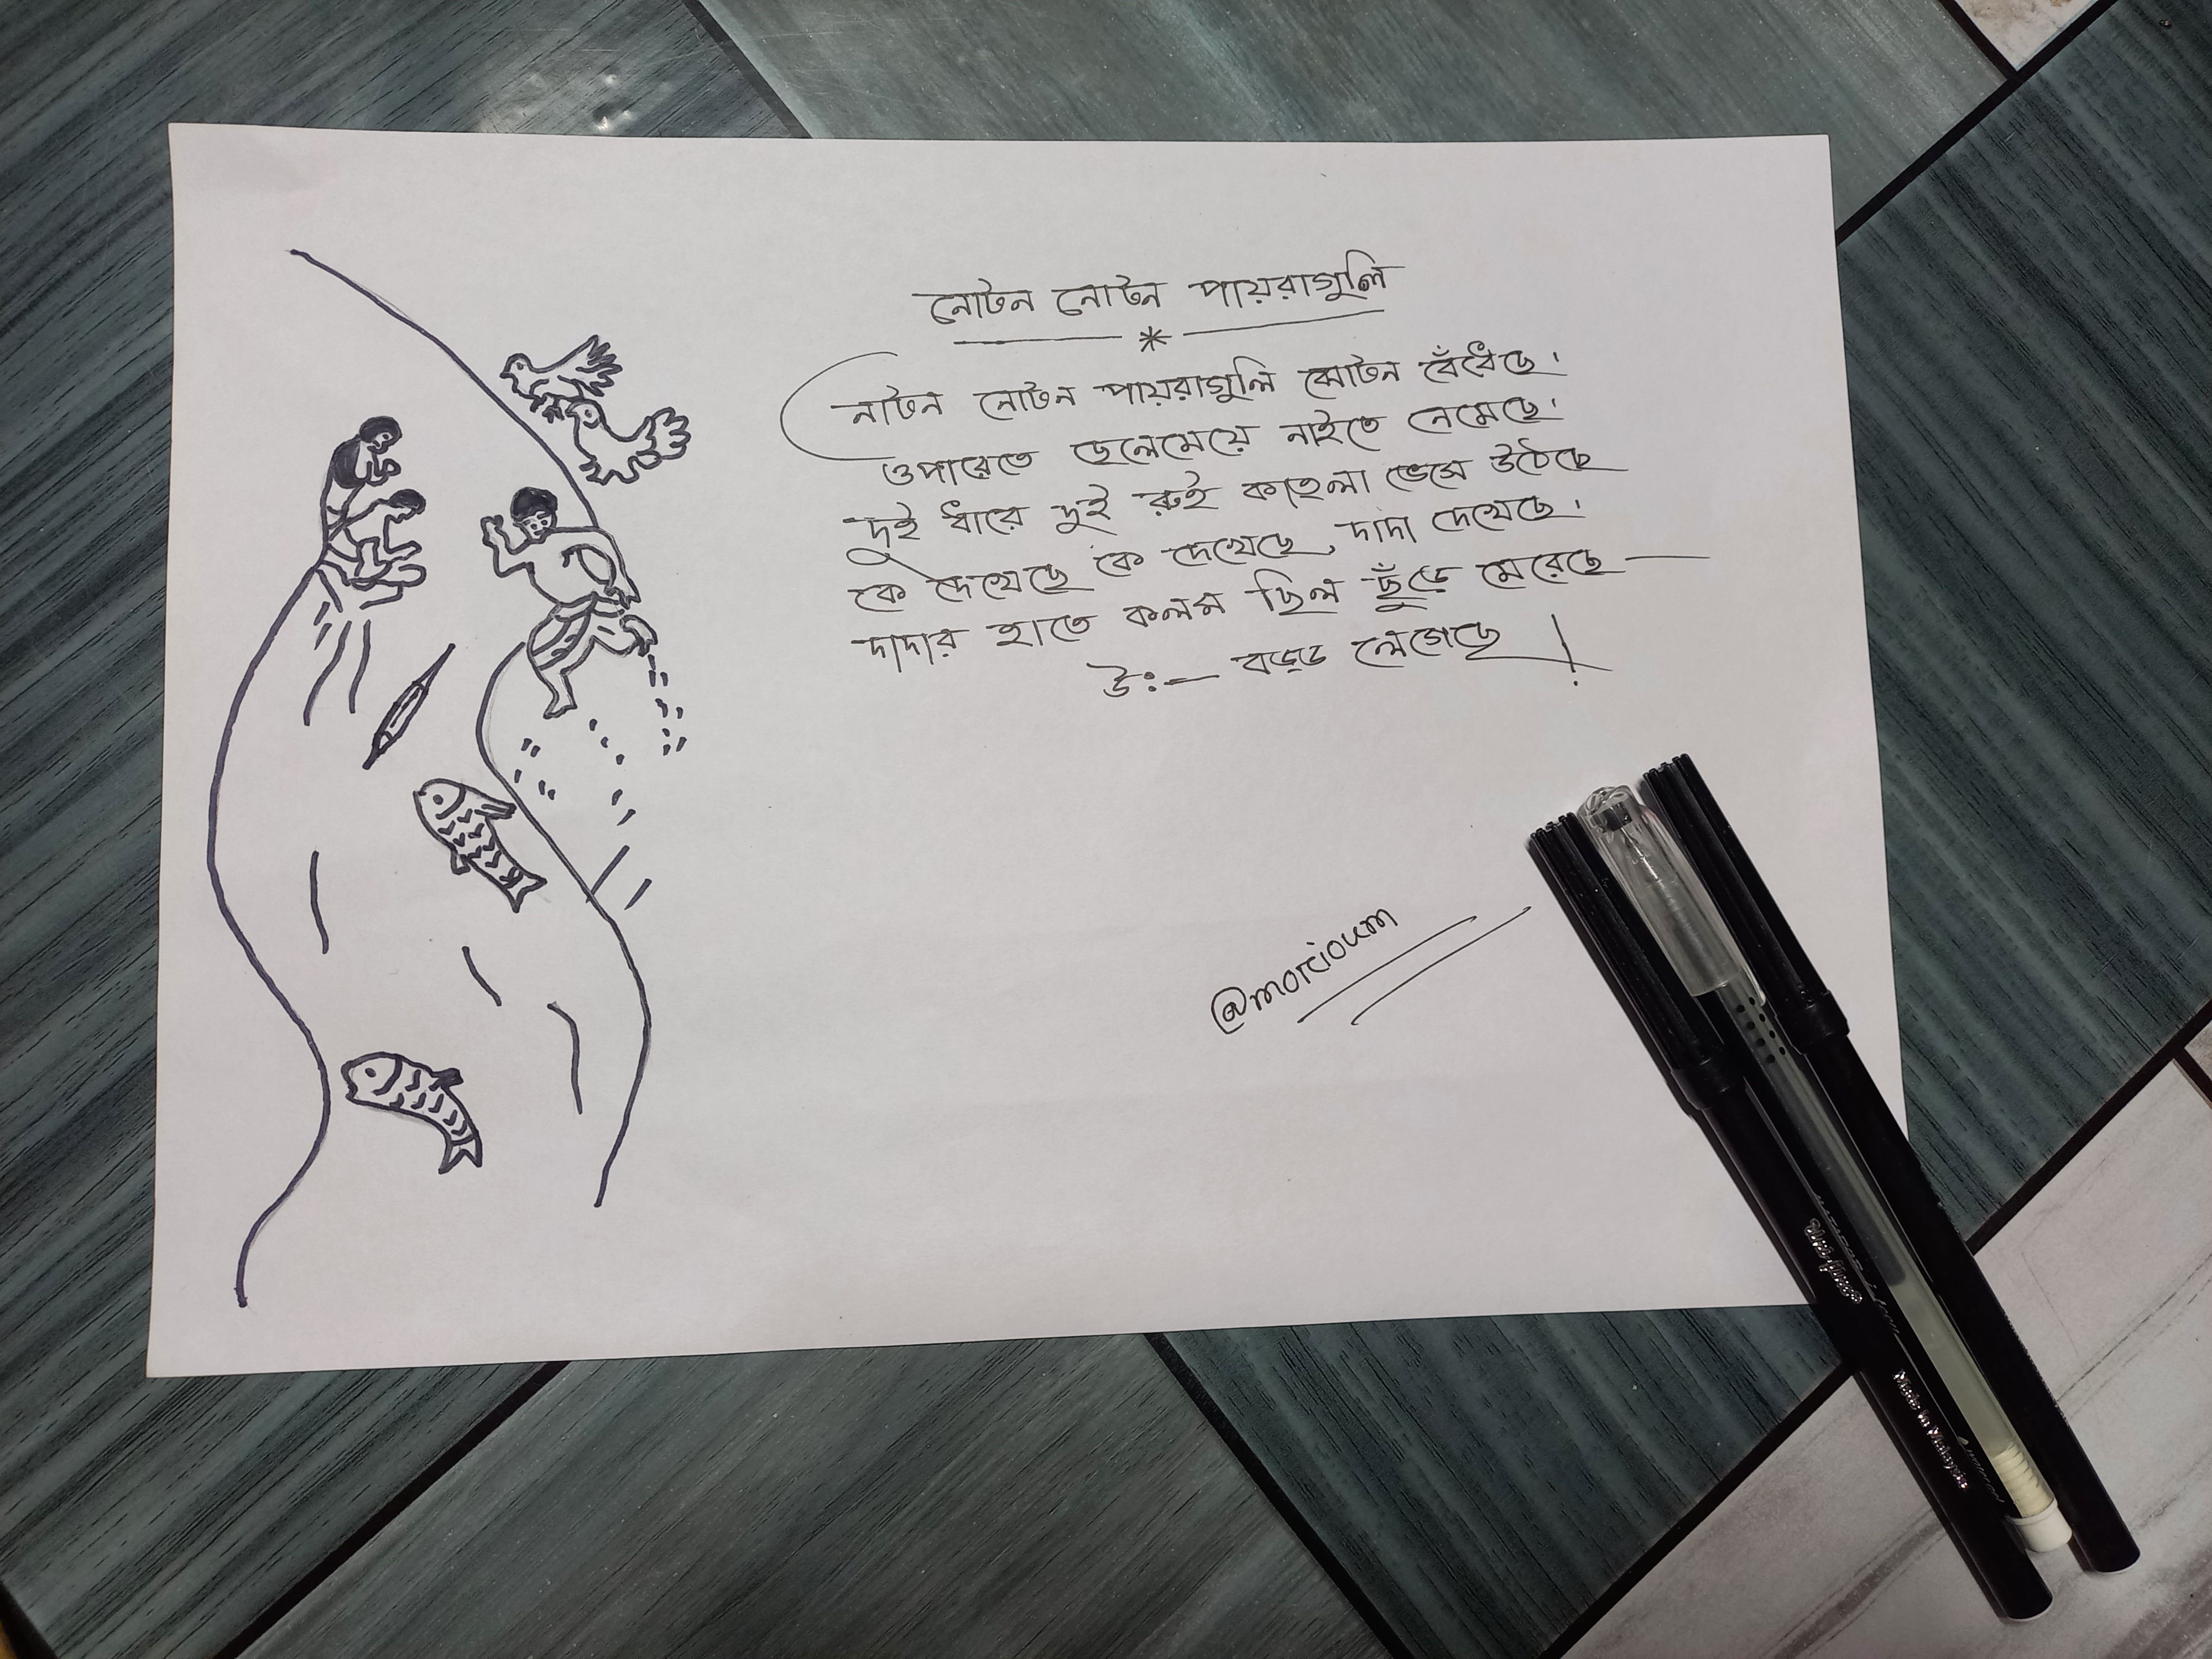 নোটন নোটন পায়রাগুলি
নোটন নোটন পায়রাগুলি ঝোটন বেঁধেছে।
ওপারেতে ছেলেমেয়ে নাইতে নেমেছে।
দুই ধারে দুই রুই কাতলা ভেসে উঠেছে
কে দেখেছে কে দেখেছে, দাদা দেখেছে।
দাদার হাতে কলম ছিল ছুঁড়ে মেরেছে —
উঃ— বড্ড লেগেছে!
Uniflow
Made in Malaysia